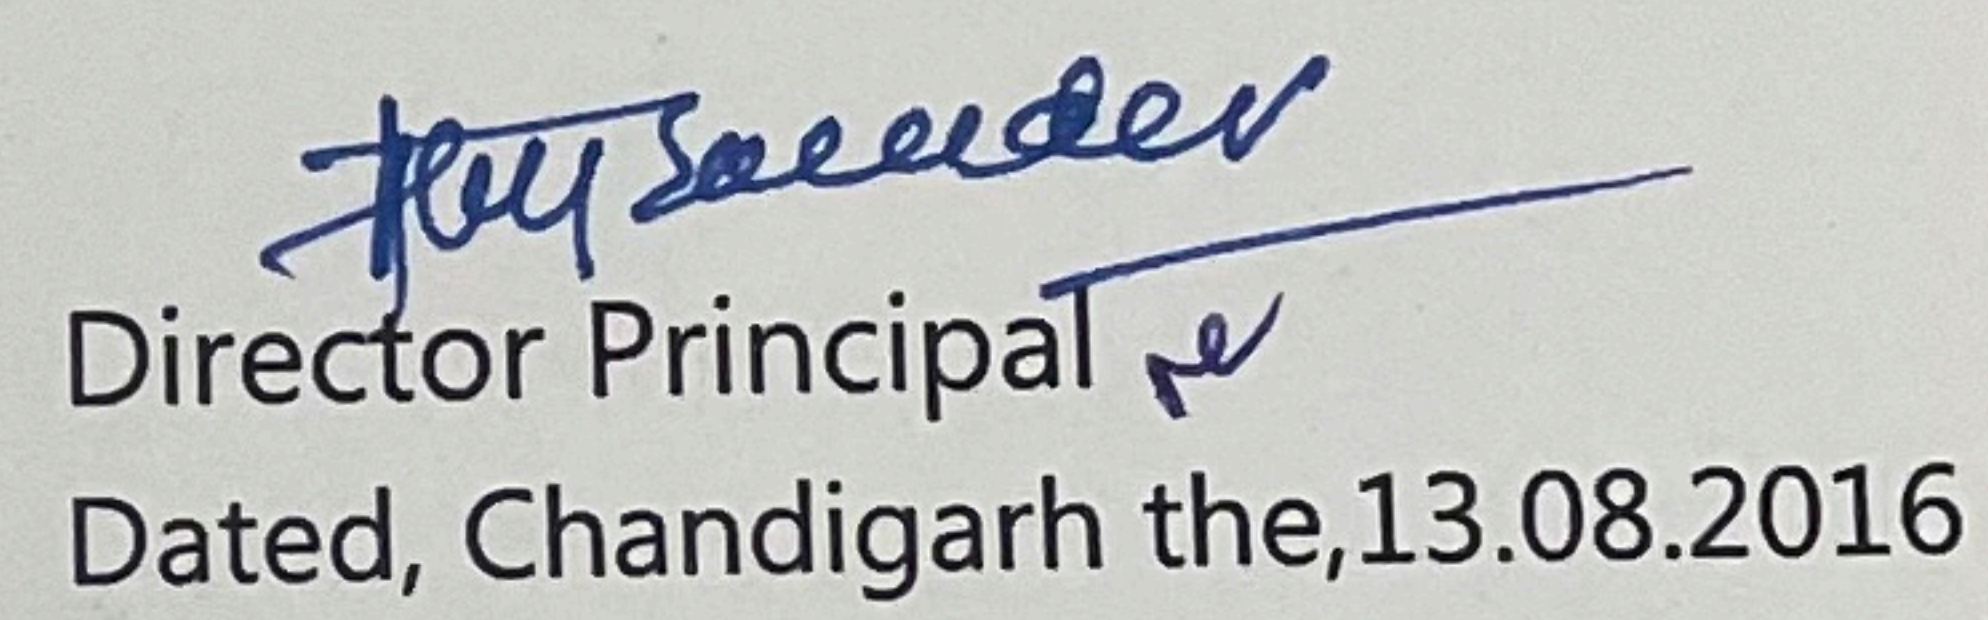 Director Principal
Dated, Chandigarh the,13.08.2016